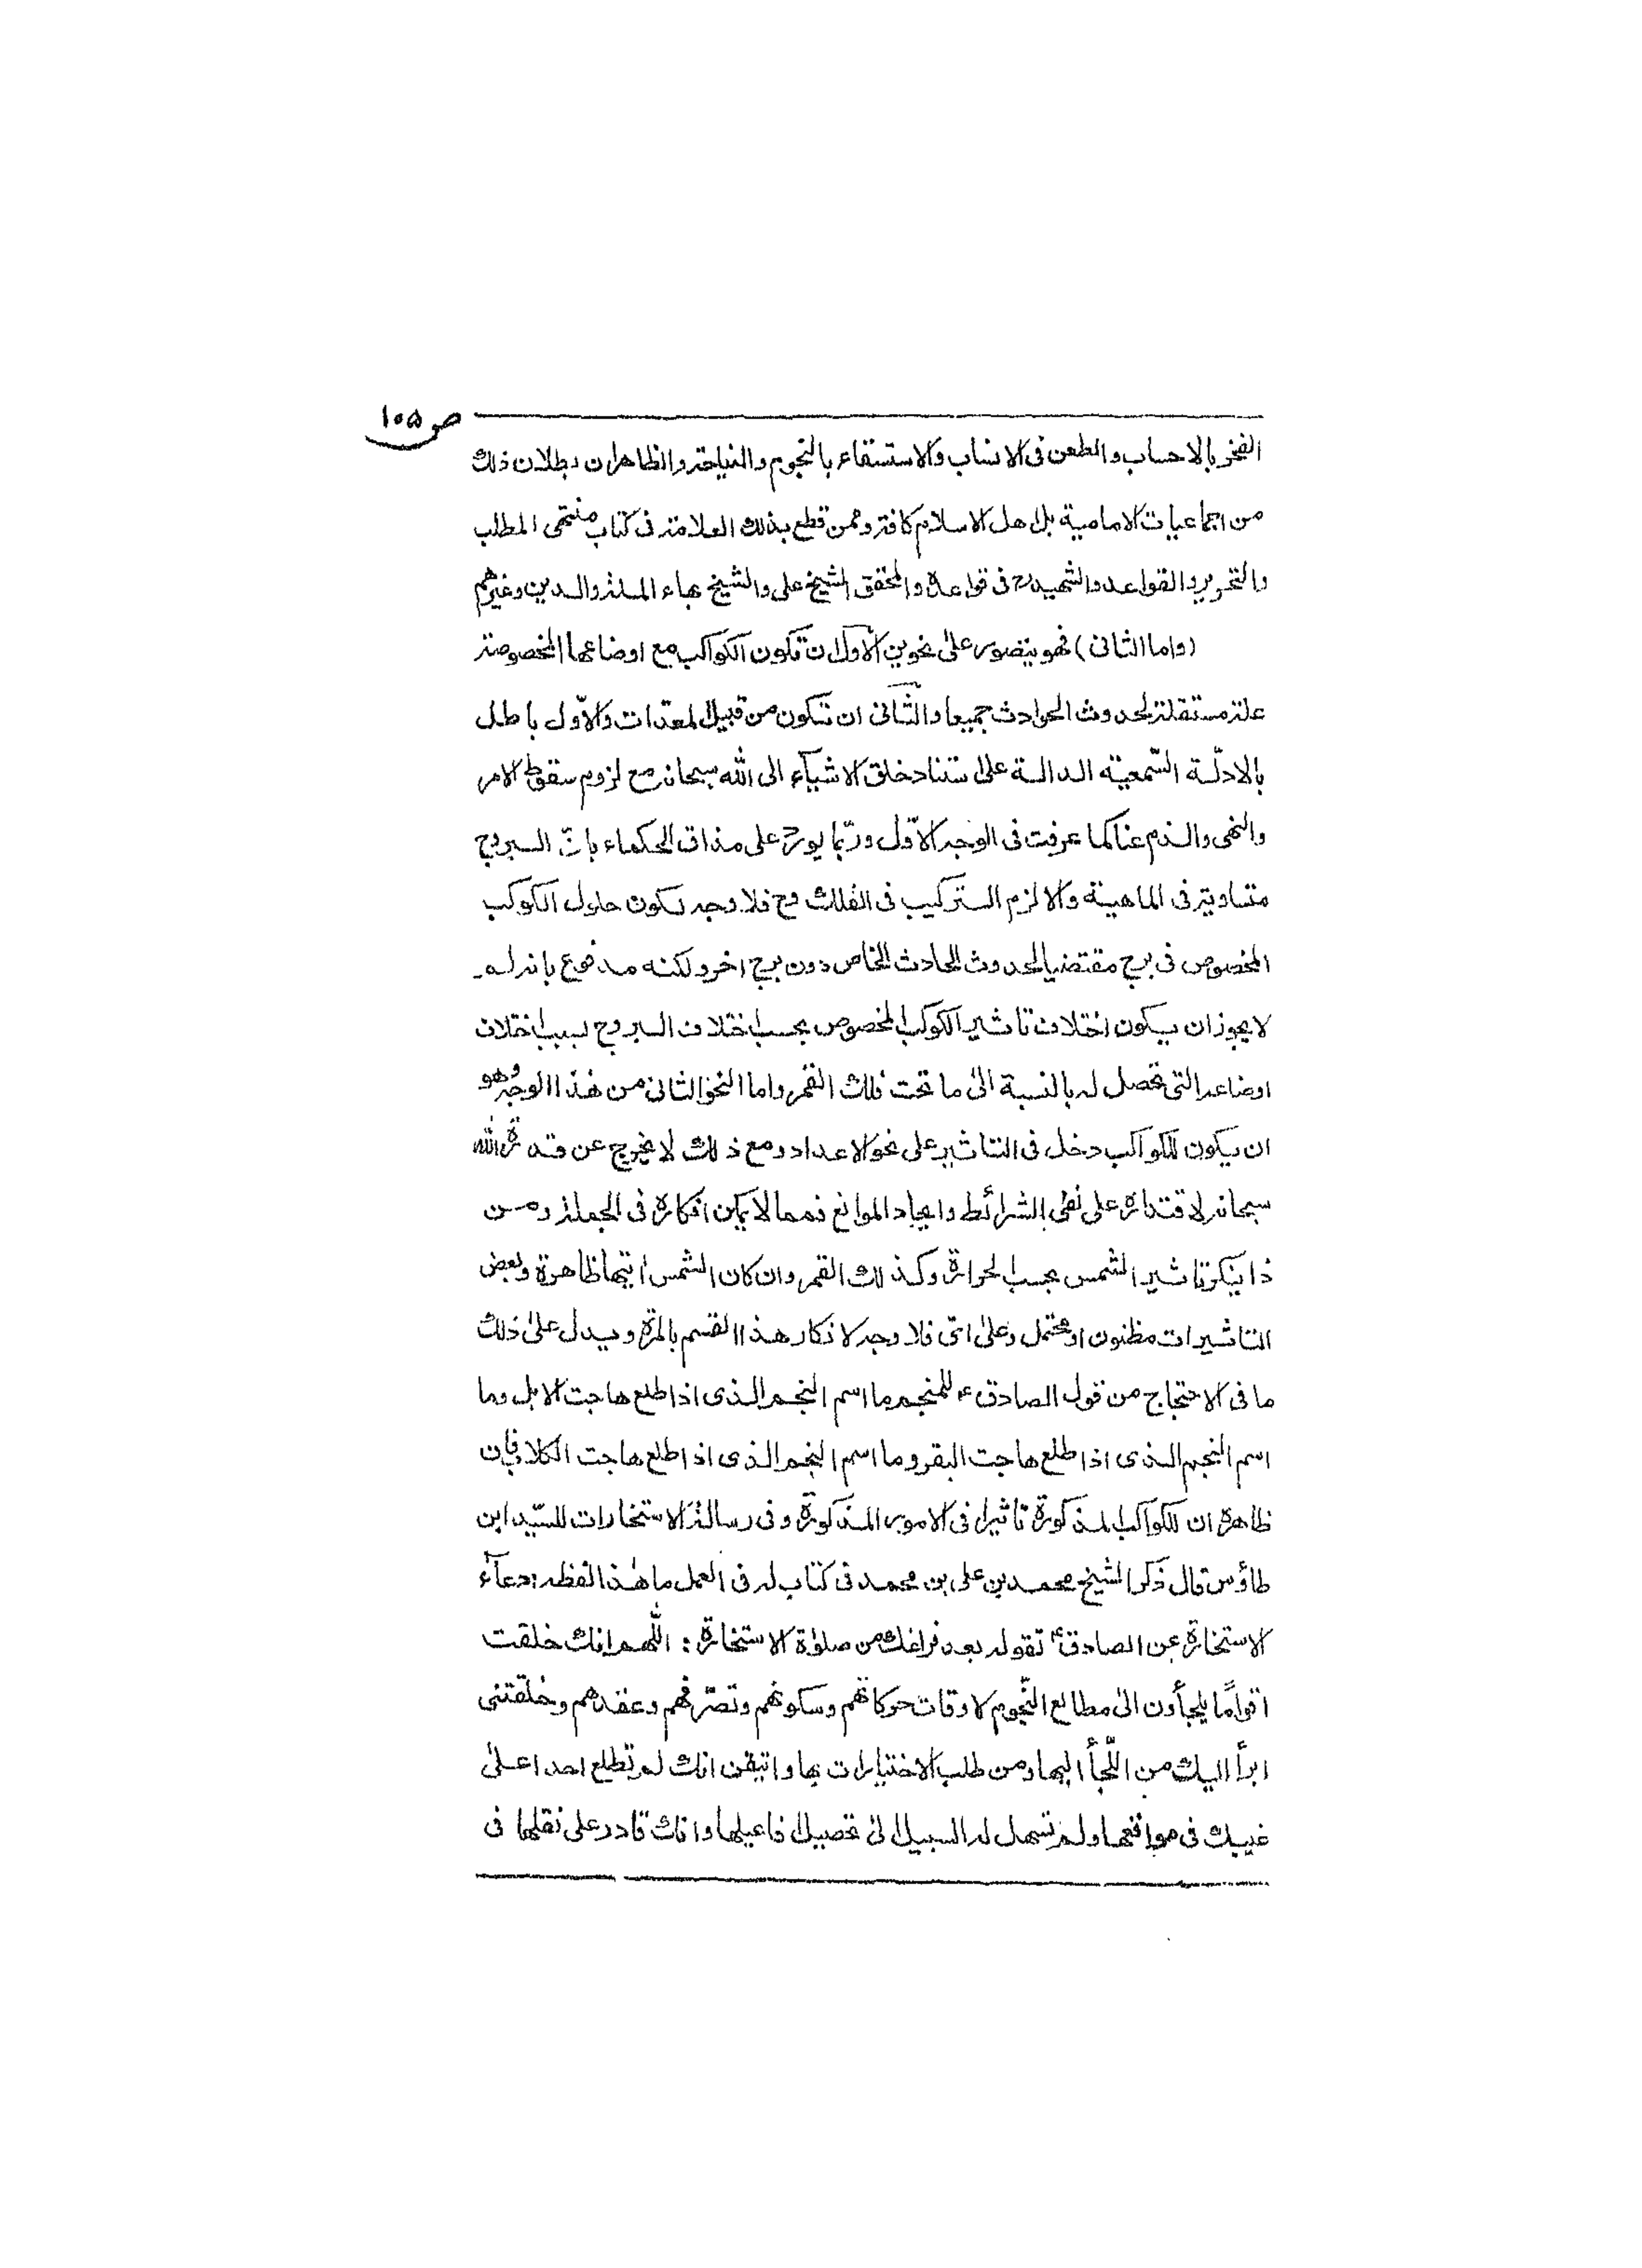 ص ۱۰۵
الفخر بالاحساب والطعن فى الانساب والاستسقاء بالنجوم والنياحة والظاهر ان بطلان ذلك
من اجماعيات الامامية بل اهل الاسلام كافة وممن قطع بذلك العلامة فى كتاب منتهى المطلب
والتحرير والقواعد والشهيد ره فى قواعده والمحقق الشيخ على والشيخ بهاء الملة والدين وغيرهم
(واما الثانى) فهو يتصور على نحوين الاول ان تكون الكواكب مع اوضاعها المخصوصة
علة مستقلة لحدوث الحوادث جميعا والثانى ان تكون من قبيل المعدات والاوّل باطل
بالادلّة السّمعيّة الدالة على استناد خلق الاشيآء الى الله سبحانه مع لزوم سقوط الامر
والنهى والذم عنا كما عرفت فى الوجه الاوّل وربّما يورد على مذاق الحكماء بانّ البروج
متساوية فى الماهية والا لزم التركيب فى الفلك وح فلا وجه لكون حلول الكوكب
المخصوص فى برج مقتضيا لحدوث الحادث الخاص دون برج اخر ولكنه مدفوع بانه لم
لا يجوز ان يكون اختلاف تاثير الكوكب المخصوص بحسب اختلاف البروج لسبب اختلاف
اوضاعه التى تحصل له بالنسبة الى ما تحت فلك القمر واما النحو الثانى من هذا الوجه وهو
ان يكون للكواكب دخل فى التاثير على نحو الاعداد ومع ذلك لا يخرج عن قدرة الله
سبحانه لاقتداره على نفى الشرائط وايجاد الموانع فمما لا يمكن انكاره فى الجملة ومن
ذا ينكر تاثير الشمس بحسب الحرارة وكذلك القمر وان كان الشمس ابينها ظاهرة وبعض
التاثيرات مظنون او محتمل وعلى اى فلا وجه لانكار هذا القسم بالمرة ويدل على ذلك
ما فى الاحتجاج من قول الصادق ع للمنجم ما اسم النجم الذى اذا طلع هاجت الابل وما
اسم النجم الذى اذا طلع هاجت البقر وما اسم النجم الذى اذا طلع هاجت الكلاب فان
ظاهره ان للكواكب المذكورة تاثيرا فى الامور المذكورة وفى رسالة الاستخارات للسّيد ابن
طاؤس قال ذكر الشيخ محمد بن على بن محمد فى كتاب له فى العمل ما هذا لفظه: دعآء
الاستخارة عن الصادق ع تقوله بعد فراغك من صلوٰة الاستخارة: اللّٰهم انك خلقت
اقوامًا يلجأون الى مطالع النّجوم لاوقات حركاتهم وسكونهم وتصرّفهم وعقدهم وخلقتنى
ابرأ اليك من اللّجأ اليها ومن طلب الاختيارات بها واتيقن انك لم تطلع احدا على
غيبك فى مواقعها ولم تسهل له السبيل الى تحصيل افاعيلها وانك قادر على نقلها فى